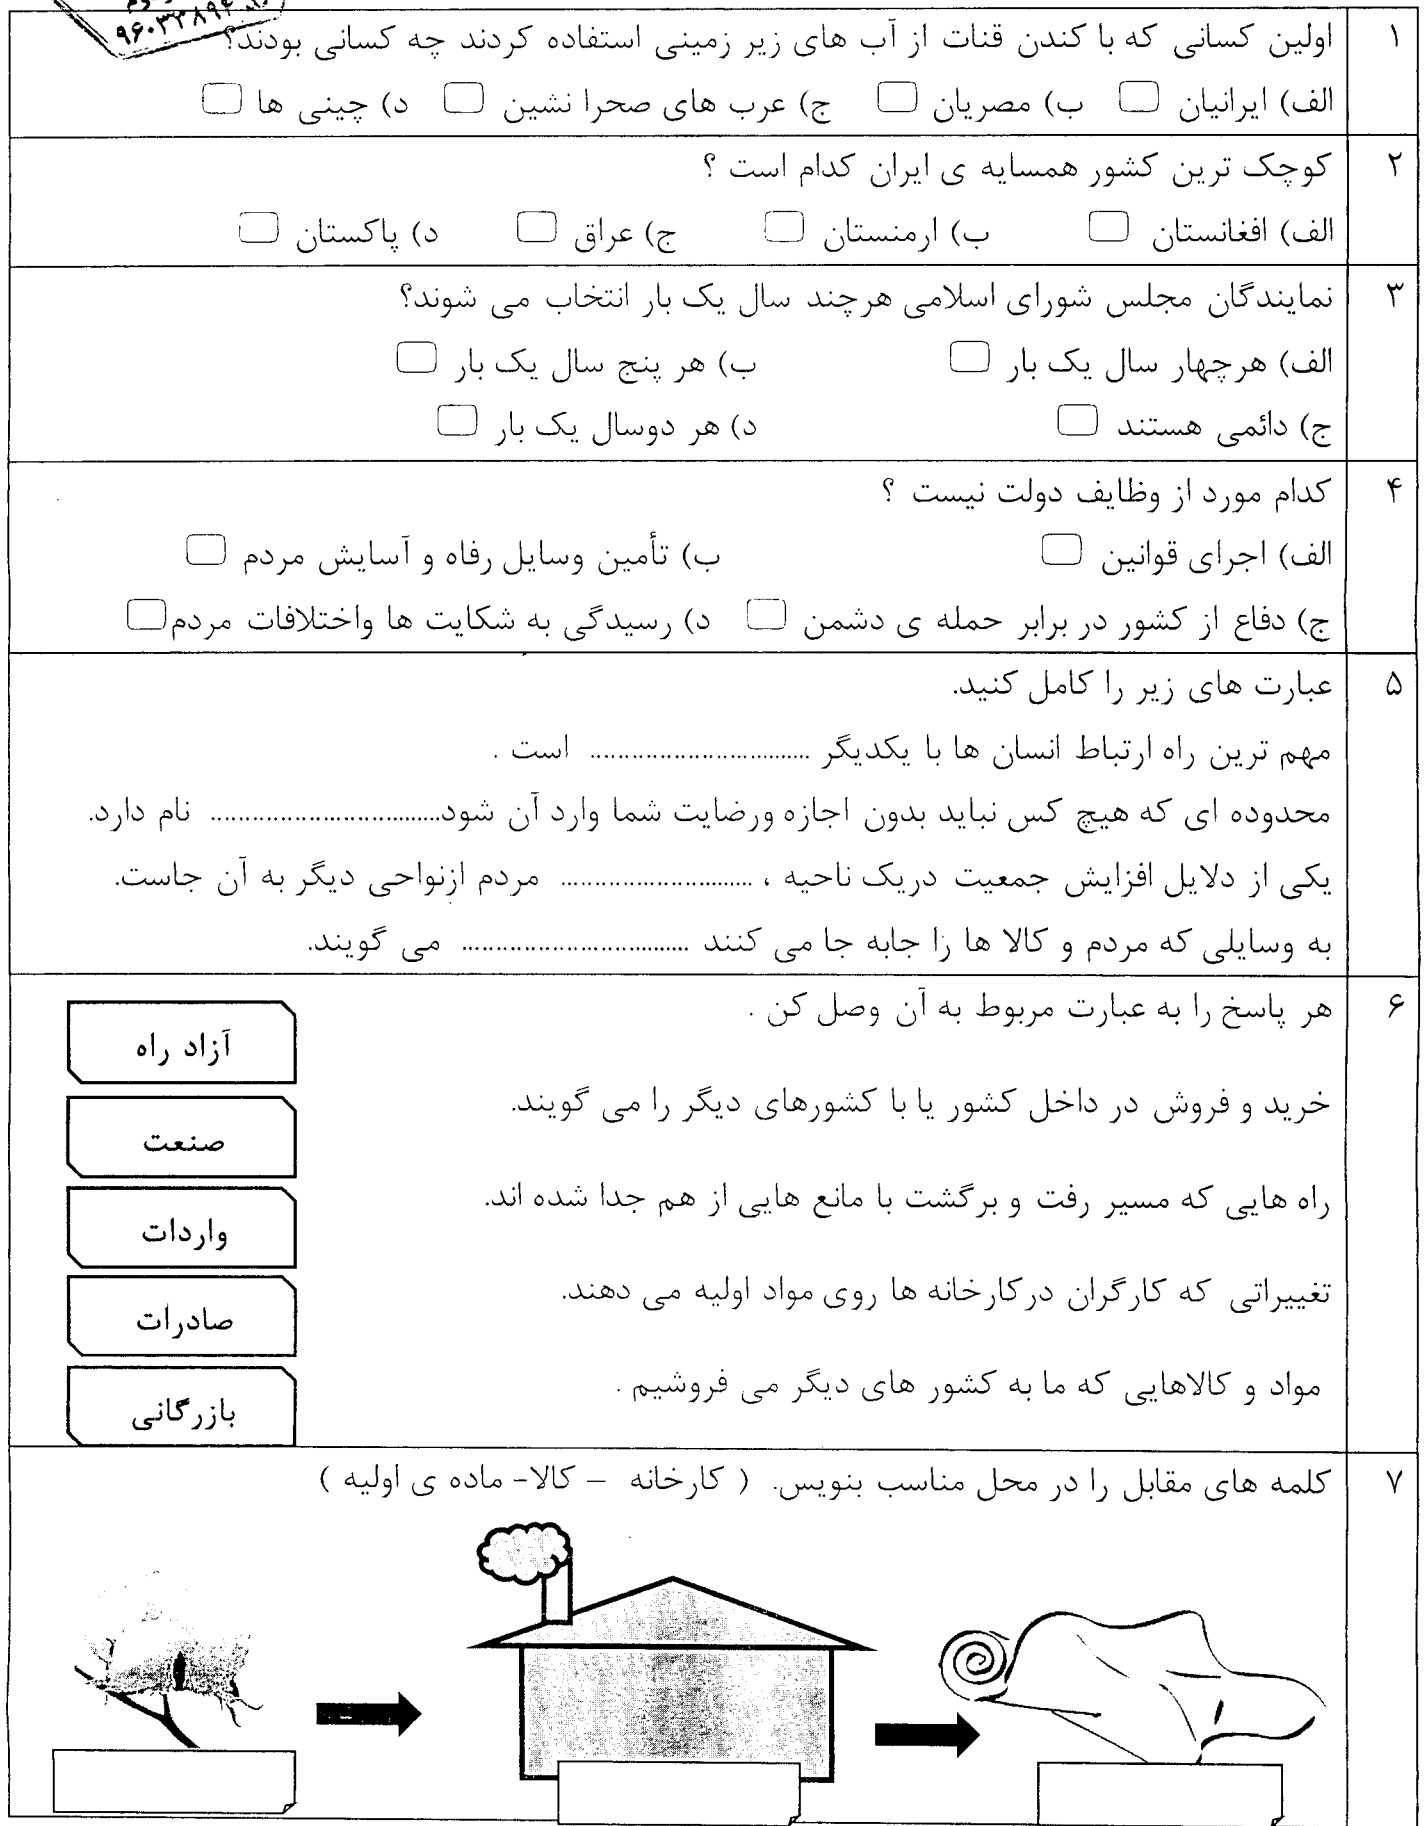 ۹۶۰۳۳۸۹۴
۱ اولین کسانی که با کندن قنات از آب های زیر زمینی استفاده کردند چه کسانی بودند؟
الف) ایرانیان ب) مصریان ج) عرب های صحرا نشین د) چینی ها
۲ کوچک ترین کشور همسایه ی ایران کدام است ؟
الف) افغانستان ب) ارمنستان ج) عراق د) پاکستان
۳ نمایندگان مجلس شورای اسلامی هرچند سال یک بار انتخاب می شوند؟
الف) هرچهار سال یک بار ب) هر پنج سال یک بار
ج) دائمی هستند د) هر دوسال یک بار
۴ کدام مورد از وظایف دولت نیست ؟
الف) اجرای قوانین ب) تأمین وسایل رفاه و آسایش مردم
ج) دفاع از کشور در برابر حمله ی دشمن د) رسیدگی به شکایت ها واختلافات مردم
۵ عبارت های زیر را کامل کنید.
مهم ترین راه ارتباط انسان ها با یکدیگر ................................ است .
محدوده ای که هیچ کس نباید بدون اجازه ورضایت شما وارد آن شود................................ نام دارد.
یکی از دلایل افزایش جمعیت دریک ناحیه ، ............................ مردم ازنواحی دیگر به آن جاست.
به وسایلی که مردم و کالا ها را جابه جا می کنند ................................ می گویند.
۶ هر پاسخ را به عبارت مربوط به آن وصل کن .
آزاد راه
خرید و فروش در داخل کشور یا با کشورهای دیگر را می گویند.
صنعت
راه هایی که مسیر رفت و برگشت با مانع هایی از هم جدا شده اند.
واردات
تغییراتی که کارگران درکارخانه ها روی مواد اولیه می دهند.
صادرات
مواد و کالاهایی که ما به کشور های دیگر می فروشیم .
بازرگانی
۷ کلمه های مقابل را در محل مناسب بنویس. ( کارخانه – کالا- ماده ی اولیه )